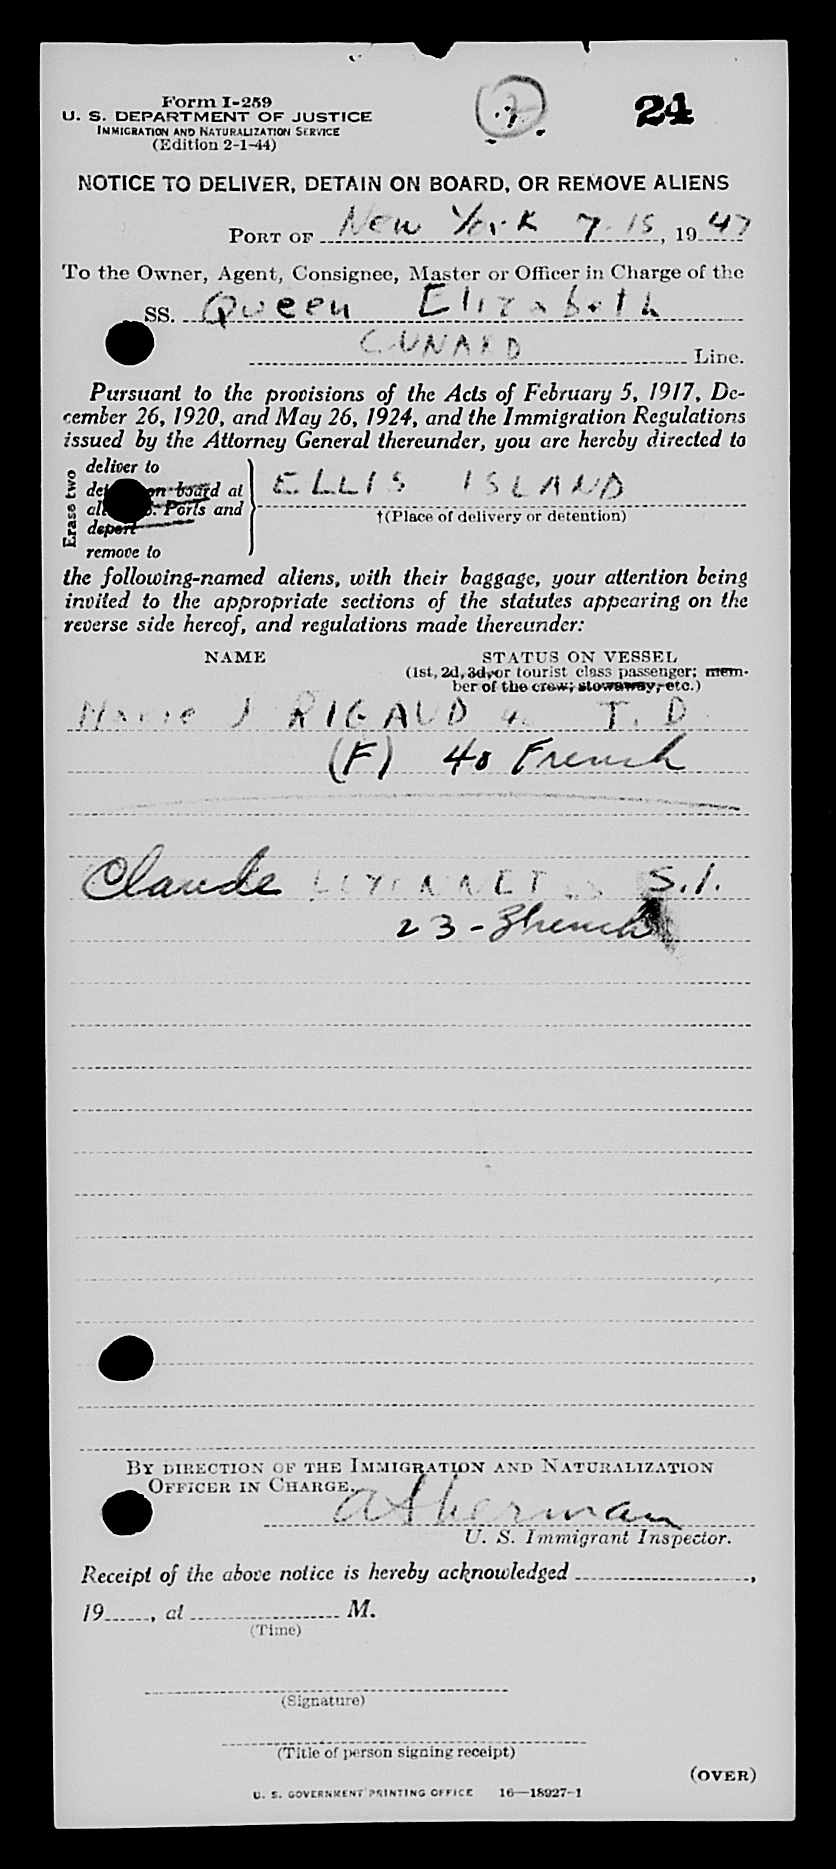 Form I-259
U. S. DEPARTMENT OF JUSTICE
IMMIGRATION AND NATURALIZATION SERVICE
(Edition 2-1-44)
7
24
NOTICE TO DELIVER, DETAIN ON BOARD, OR REMOVE ALIENS
PORT OF New York 7-15, 1947
To the Owner, Agent, Consignee, Master or Officer in Charge of the
SS. Queen Elizabeth
CUNARD Line.
Pursuant to the provisions of the Acts of February 5, 1917, De-
cember 26, 1920, and May 26, 1924, and the Immigration Regulations
issued by the Attorney General thereunder, you are hereby directed to
Erase two
deliver to
on board at
Ports and
deport
remove to
ELLIS ISLAND
†(Place of delivery or detention)
the following-named aliens, with their baggage, your attention being
invited to the appropriate sections of the statutes appearing on the
reverse side hereof, and regulations made thereunder:
NAME STATUS ON VESSEL
(1st, 2d, 3d, or tourist class passenger; mem-
ber of the crew; stowaway, etc.)
Marie J RIGAUD T. D.
(F) 40 French
Claude S.I.
23 - French
BY DIRECTION OF THE IMMIGRATION AND NATURALIZATION
OFFICER IN CHARGE.
U. S. Immigrant Inspector.
Receipt of the above notice is hereby acknowledged ,
19 , at M.
(Time)
(Signature)
(Title of person signing receipt)
(OVER)
U. S. GOVERNMENT PRINTING OFFICE 16—18927-1